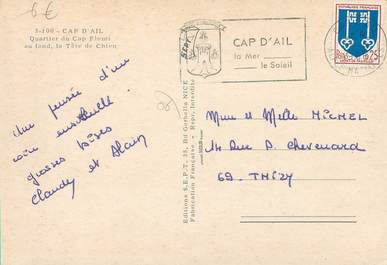 6 €
3-100 - CAP D'AIL
Quartier du Cap Fleuri
au fond, la Tête de Chien
Une pensée d'un
coin ensoleillé.
grosses bises
Claudey et Alain
Editions S.E.P.T. 15, Bd Gorbella NICE
Fabrication Française - Repr. Interdite
CAP D'AIL
la Mer
le Soleil
REPUBLIQUE FRANÇAISE
Mme et Melle MICHEL
14 Rue P. Chevenard
69. THIZY